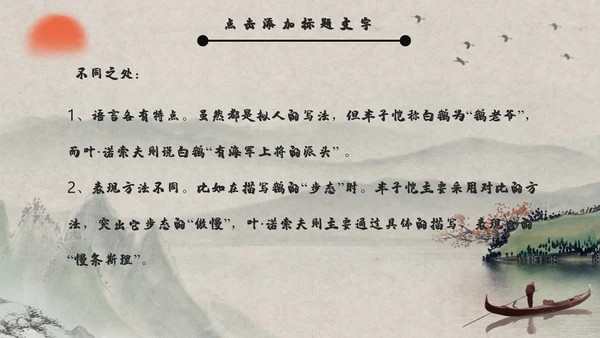 点击添加标题文字
不同之处：
1、语言各有特点。虽然都是拟人的写法，但丰子恺称白鹅为“鹅老爷”，
而叶·诺索夫则说白鹅“有海军上将的派头”。
2、表现方法不同。比如在描写鹅的“步态”时。丰子恺主要采用对比的方
法，突出它步态的“傲慢”，叶·诺索夫则主要通过具体的描写，表现 的
“慢条斯理”。